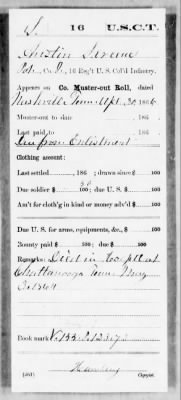 S. 16 U.S.C.T.
Austin Serene
Co. 16 Reg't U.S. Col'd Infantry.
Appears on Co. Muster-out Roll, dated
Nashville Tenn Apl 30, 1866.
Muster-out to date , 186 .
Last paid to , 186 .
from Enlistment
Clothing account:
Last settled , 186 ; drawn since $ 100
Due soldier $ 100; due U.S. $ 100
Am't for cloth'g in kind or money adv'd $ 100
Due U.S. for arms, equipments, &c., $ 100
Bounty paid $ 100; due $ 100
Remarks: Died in Hosptl at
Chattanooga Tenn May
1864
Book mark:
(361) Copyist.